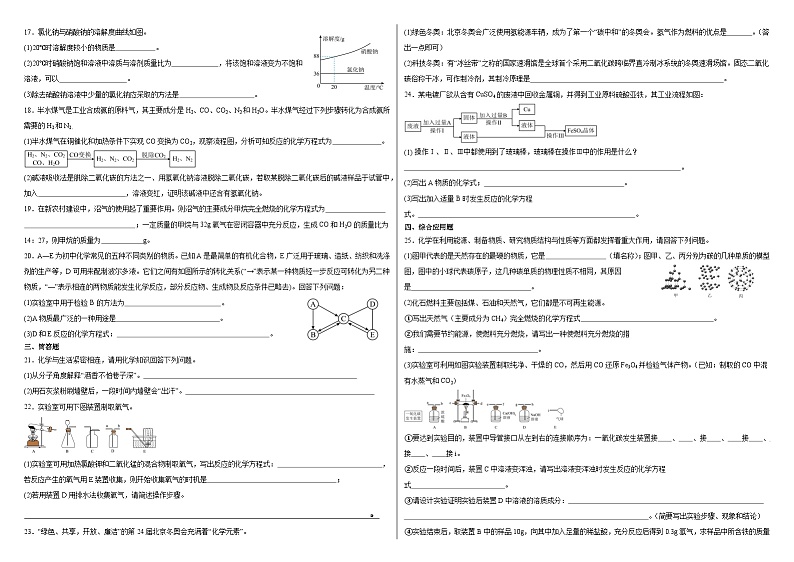 17．氯化钠与硝酸钠的溶解度曲线如图。
(1)20℃时溶解度较小的物质是
(2)20℃时硝酸钠饱和溶液中溶质与溶剂质量比为，将该饱和溶液变为不饱和
溶液，可以
(3)除去硝酸钠溶液中少量的氯化钠应采取的方法是。
溶解度/g
88
36
0 20 温度/℃
硝酸钠
氯化钠
18．半水煤气是工业合成氨的原料气，其主要成分是 H₂、CO、CO₂、N₂和 H₂O。半水煤气经过下列步骤转化为合成氨所
需要的 H₂和 N₂
(1)半水煤气在铜催化和加热条件下实现 CO 变换为 CO₂，观察流程图，分析可知反应的化学方程式为。
H₂、N₂、CO₂ CO、H₂O CO变换 H₂、N₂、CO₂ 脱除CO₂ H₂、N₂
(2)碱液吸收法是脱除二氧化碳的方法之一．用氢氧化钠溶液脱除二氧化碳，若取某脱除二氧化碳后的碱液样品于试管中，
加入，溶液变红，证明该碱液中还含有氢氧化钠。
19．在新农村建设中，沼气的使用起了重要作用。则沼气的主要成分甲烷完全燃烧的化学方程式为
；一定质量的甲烷与12g氧气在密闭容器中充分反应，生成 CO 和 H₂O 的质量比为
14：27，则甲烷的质量为g。
20．A—E 为初中化学常见的五种不同类别的物质。已知 A 是最简单的有机化合物，E 广泛用于玻璃、造纸、纺织和洗涤
剂的生产等，D 可用来配制波尔多液。它们之间有如图所示的转化关系(“→”表示某一种物质经一步反应可转化为另二种
物质，“—”表示相连的两物质能发生化学反应，部分反应物、生成物及反应条件已略去)。回答下列问题：
(1)实验室中用于检验 B 的方法为。
(2)A物质最广泛的一种用途是。
(3)D和E反应的化学方程式：。
A D C B E
三、简答题
21．化学与生活紧密相连，请用化学知识回答下列问题。
(1)从分子角度解释“酒香不怕巷子深”。
(2)用石灰浆粉刷墙壁后，一段时间内墙壁会“出汗”。
22．实验室可用下图装置制取氧气。
A B C D E
(1)实验室可用加热氯酸钾和二氧化锰的混合物制取氧气，写出反应的化学方程式：，
若反应产生的氧气用 E 装置收集，则开始收集氧气的时机是；
(2)若用装置 D 用排水法收集氧气，请简述操作步骤。
。
23．“绿色、共享，开放、廉洁”的第24届北京冬奥会充满着“化学元素”。
(1)绿色冬奥：北京冬奥会广泛使用氢能源车辆，成为了第一个“碳中和”的冬奥会。氢气作为燃料的优点是。(答
出一点即可)
(2)科技冬奥：有“冰丝带”之称的国家速滑馆是全球首个采用二氧化碳跨临界直冷制冰系统的冬奥速滑场馆。固态二氧化
碳俗称干冰，可作制冷剂，其制冷原理是。
24．某电镀厂欲从含有 CuSO₄的废液中回收金属铜，并得到工业原料硫酸亚铁，其工业流程如图：
废液 加入过量A 操作Ⅰ 固体 加入过量B 操作Ⅱ Cu 液体 液体 操作Ⅲ FeSO₄晶体
(1) 操作Ⅰ、Ⅱ、Ⅲ中都使用到了玻璃棒，玻璃棒在操作Ⅲ中的作用是什么？
。
(2)写出 A 物质的化学式：。
(3)写出加入适量 B 时发生反应的化学方程
式。。
四、综合应用题
25．化学在利用能源、制备物质、研究物质结构与性质等方面都发挥着重大作用，请回答下列问题。
(1)图甲代表的是天然存在的最硬的物质，它是(填名称)；图甲、乙、丙分别为碳的几种单质的模型
图，图中的小球代表碳原子，这几种碳单质的物理性质不相同，其原因
是。
甲 乙 丙
(2)化石燃料主要包括煤、石油和天然气，它们都是不可再生能源。
①写出天然气（主要成分为 CH₄）完全燃烧的化学方程式；
②我们需要节约能源，使燃料充分燃烧，请写出一种使燃料充分燃烧的措
施：。
(3)实验室可利用如图实验装置制取纯净、干燥的 CO，然后用 CO 还原 Fe₂O₃并检验气体产物。(已知：制取的 CO 中混
有水蒸气和 CO₂)
一氧化碳发生装置 浓硫酸 Fe₂O₃ Ca(OH)₂溶液 NaOH溶液 气球
A B C D E
①要达到实验目的，装置中导管接口从左到右的连接顺序为：一氧化碳发生装置接、接、接、
接、接 i。
②反应一段时间后，装置 C 中溶液变浑浊，请写出溶液变浑浊时发生反应的化学方程
式。
③请设计实验证明实验后装置 D 中溶液的溶质成分：
。(简要写出实验步骤、现象和结论)
④实验结束后，取装置 B 中的样品 10g，向其中加入足量的稀盐酸，充分反应后得到 0.3g 氢气，求样品中所含铁的质量